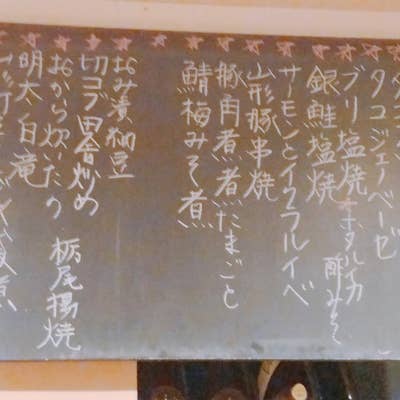 タコジェノベーゼ
ブリ塩焼 ホタルイカ酢みそ
銀鮭塩焼
サーモンとイクラルイベ
山形豚串焼
豚角煮煮たまごと
鯖梅みそ煮
おみ漬納豆
切コブ田舎炒め
おから炊いたの 栃尾揚焼
明太白滝